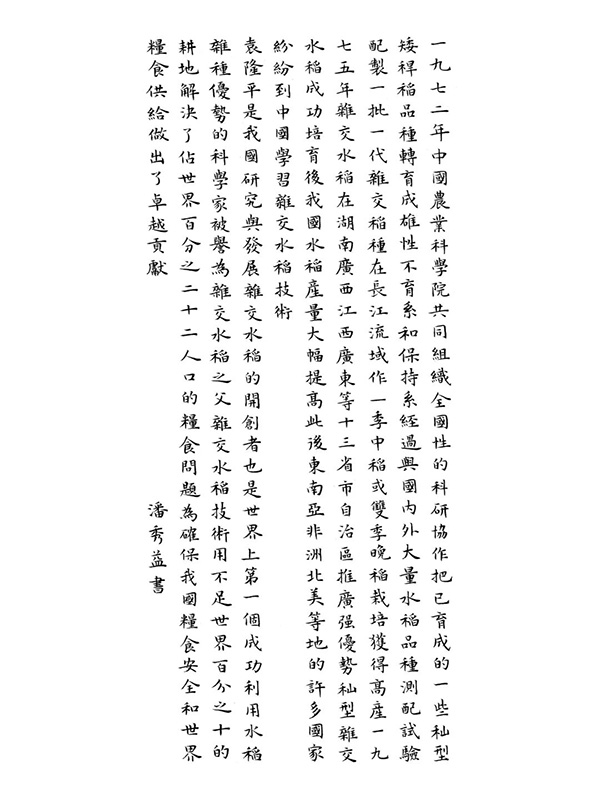 一九七二年中國農業科學院共同組織全國性的科研協作把已育成的一些秈型
矮稈稻品種轉育成雄性不育系和保持系經過與國内外大量水稻品種測配試驗
配製一批一代雜交稻種在長江流域作一季中稻或雙季晚稻栽培獲得高産一九
七五年雜交水稻在湖南廣西江西廣東等十三省市自治區推廣强優勢秈型雜交
水稻成功培育後我國水稻産量大幅提高此後東南亞非洲北美等地的許多國家
紛紛到中國學習雜交水稻技術
袁隆平是我國研究與發展雜交水稻的開創者也是世界上第一個成功利用水稻
雜種優勢的科學家被譽為雜交水稻之父雜交水稻技術用不足世界百分之十的
耕地解決了佔世界百分之二十二人口的糧食問題為確保我國糧食安全和世界
糧食供給做出了卓越貢獻
潘秀益書